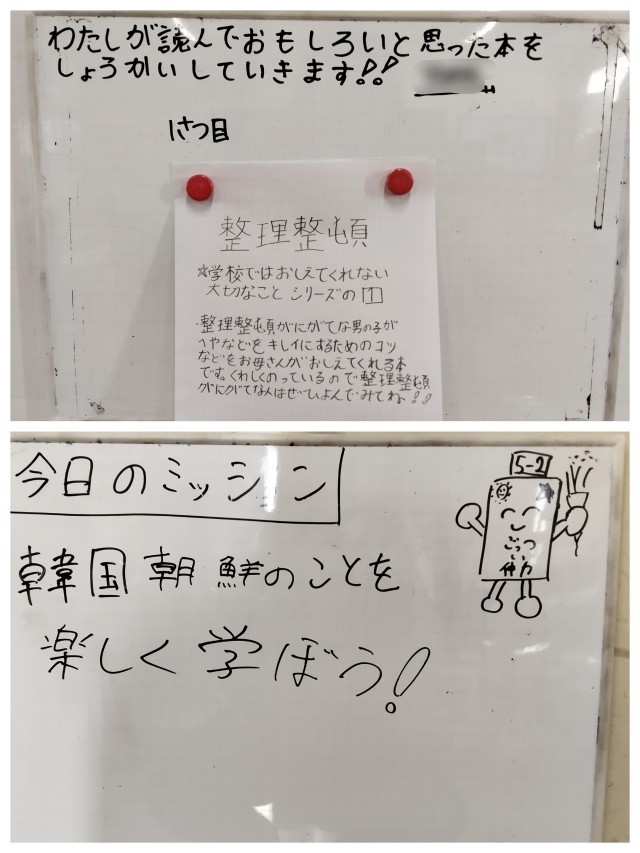 わたしが読んでおもしろいと思った本を
しょうかいしていきます!!
1さつ目
整理整頓
☆学校ではおしえてくれない
大切なこと シリーズの1
・整理整頓がにがてな男の子が
へやなどをキレイにするためのコツ
などをお母さんがおしえてくれる本
です。くわしくのっているので整理整頓
がにがてな人はぜひよんでみてね!!
今日のミッション
5-2
韓国朝鮮のことを
楽しく学ぼう!